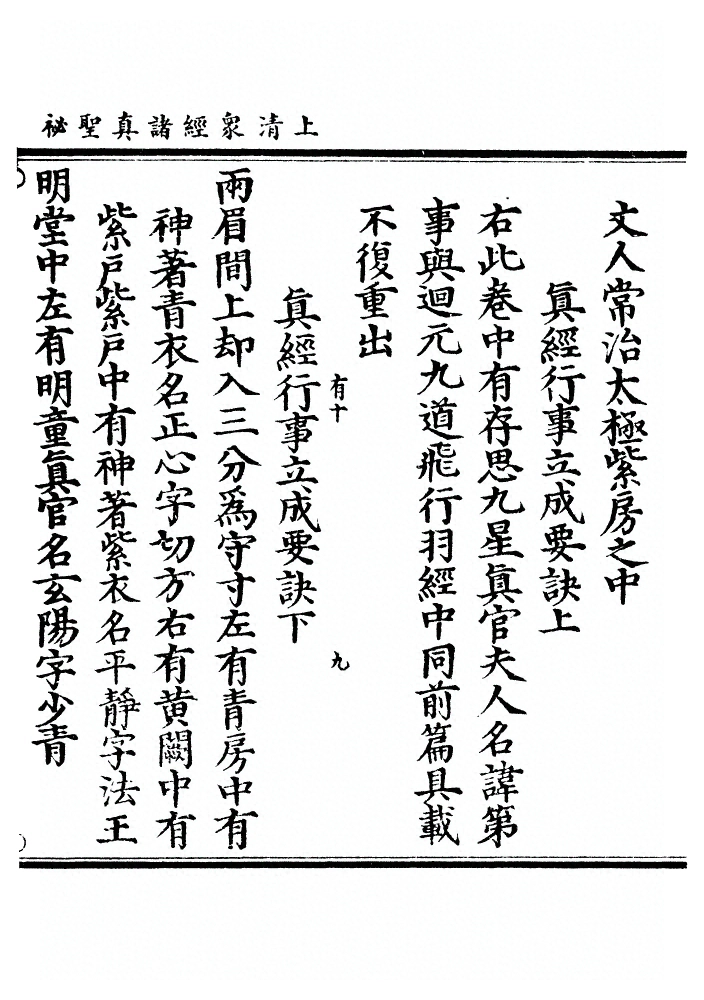 上清衆經諸真聖祕
文人常治太極紫房之中
眞經行事立成要訣上
右此卷中有存思九星眞官夫人名諱第
事與迴元九道飛行羽經中同前篇具載
不復重出
有十
九
眞經行事立成要訣下
兩眉間上却入三分爲守寸左有青房中有
神著青衣名正心字切方右有黄闕中有
紫戸紫戸中有神著紫衣名平靜字法王
明堂中左有明童眞官名玄陽字少青